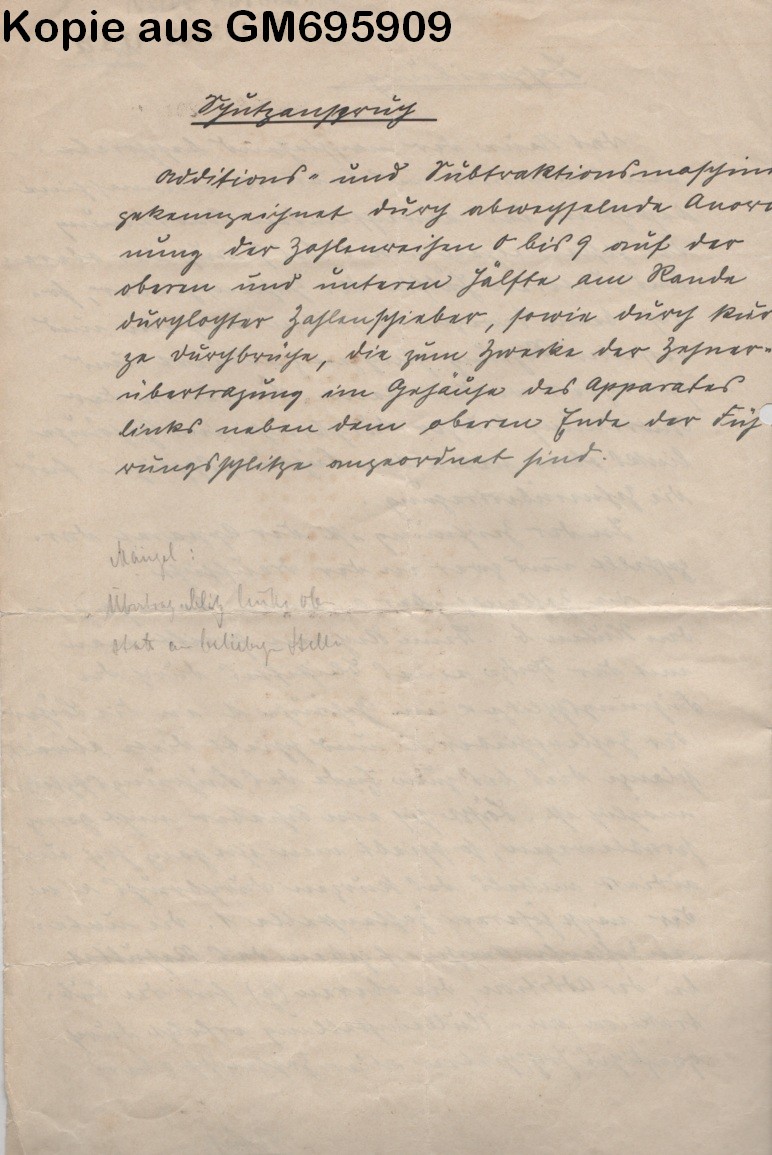 Kopie aus GM695909
Schutzanspruch
Additions- und Subtraktionsmaschine
gekennzeichnet durch abwechselnde Anord
nung der Zahlenreihen 0 bis 9 auf der
oberen und unteren Hälfte am Rande
durchlochter Zahlenschieber, sowie durch kur
ze Durchbrüche, die zum Zwecke der Zehner-
übertragung im Gehäuse des Apparates
links neben dem oberen Ende der Füh
rungsschlitze angeordnet sind.
Mängel:
links ob
statt an beliebiger Stelle